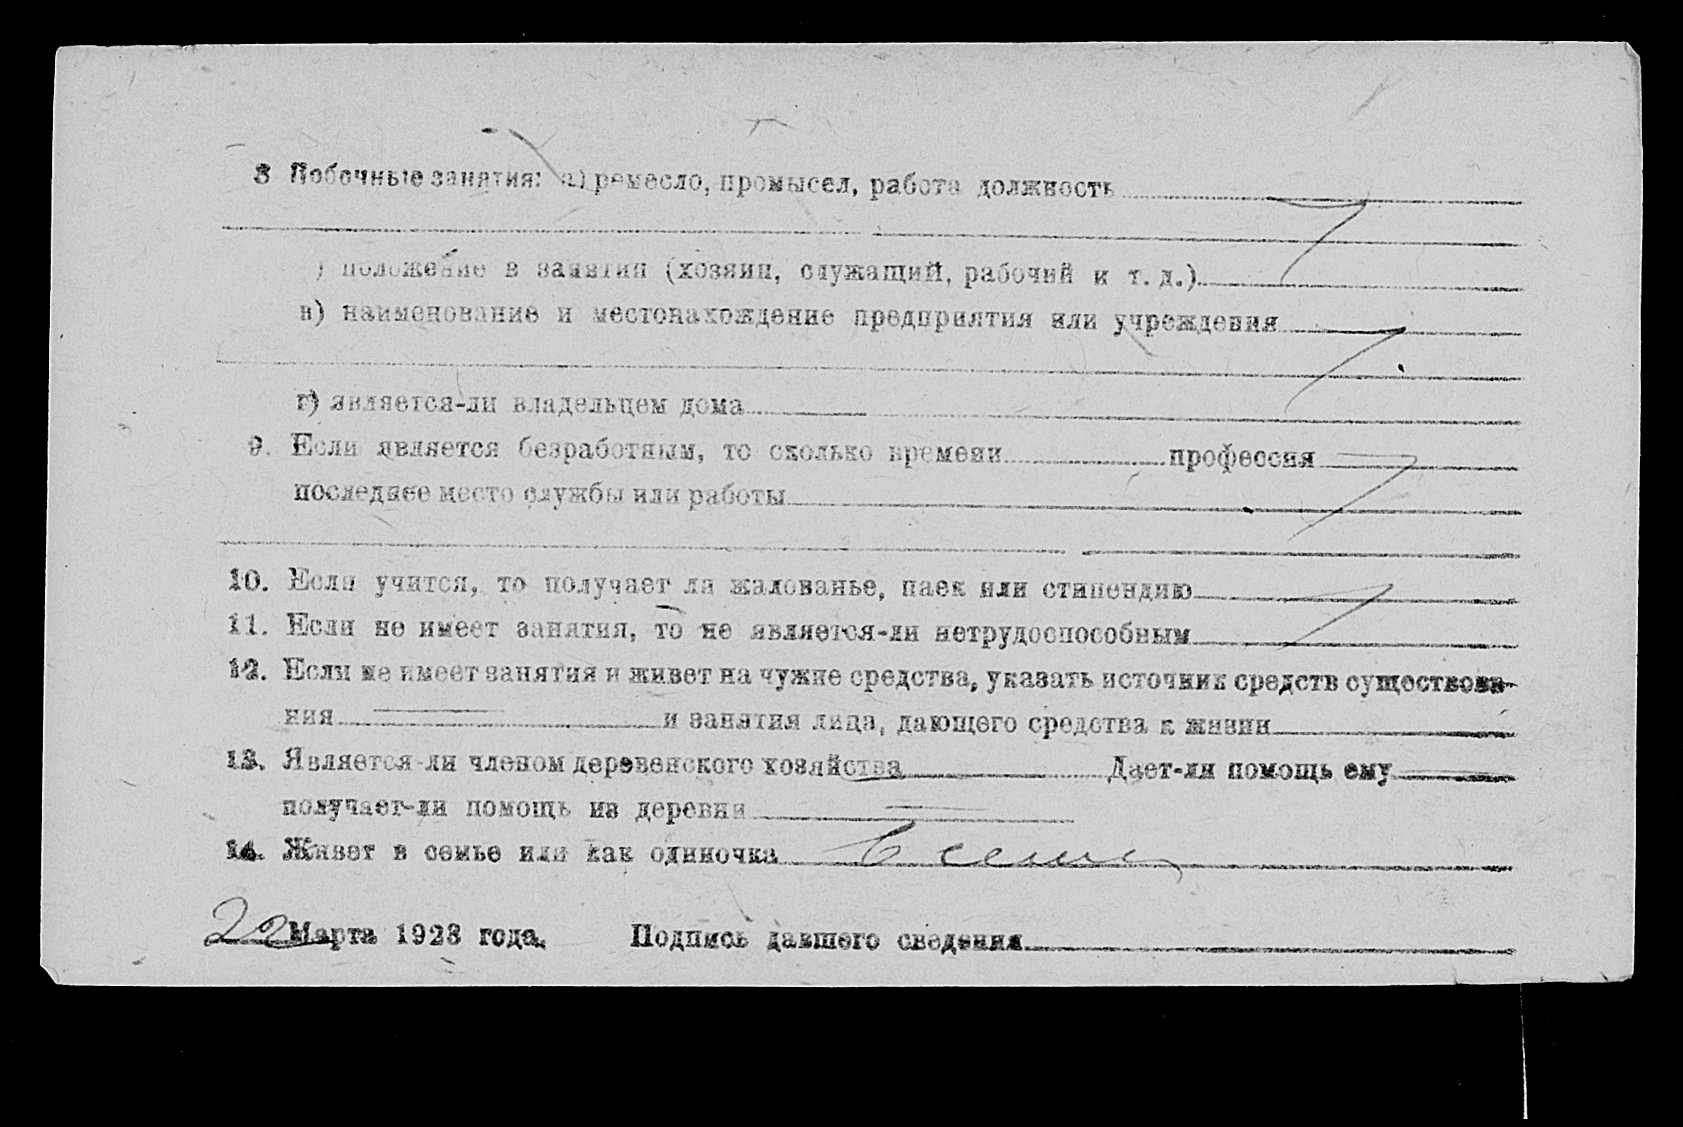 8 Побочные занятия: а) ремесло, промысел, работа должность
) положение в занятии (хозяин, служащий, рабочий и т. д.)
в) наименование и местонахождение предприятия или учреждения
г) является-ли владельцем дома
9. Если является безработным, то сколько времени профессия
последнее место службы или работы
10. Если учится, то получает ли жалованье, паек или стипендию
11. Если не имеет занятия, то не является-ли нетрудоспособным
12. Если не имеет занятия и живет на чужие средства, указать источник средств существова-
ния и занятия лица, дающего средства к жизни
13. Является-ли членом деревенского хозяйства Дает-ли помощь ему
получает-ли помощь из деревни
14. Живет в семье или как одиночка В семье
22 Марта 1923 года. Подпись давшего сведения